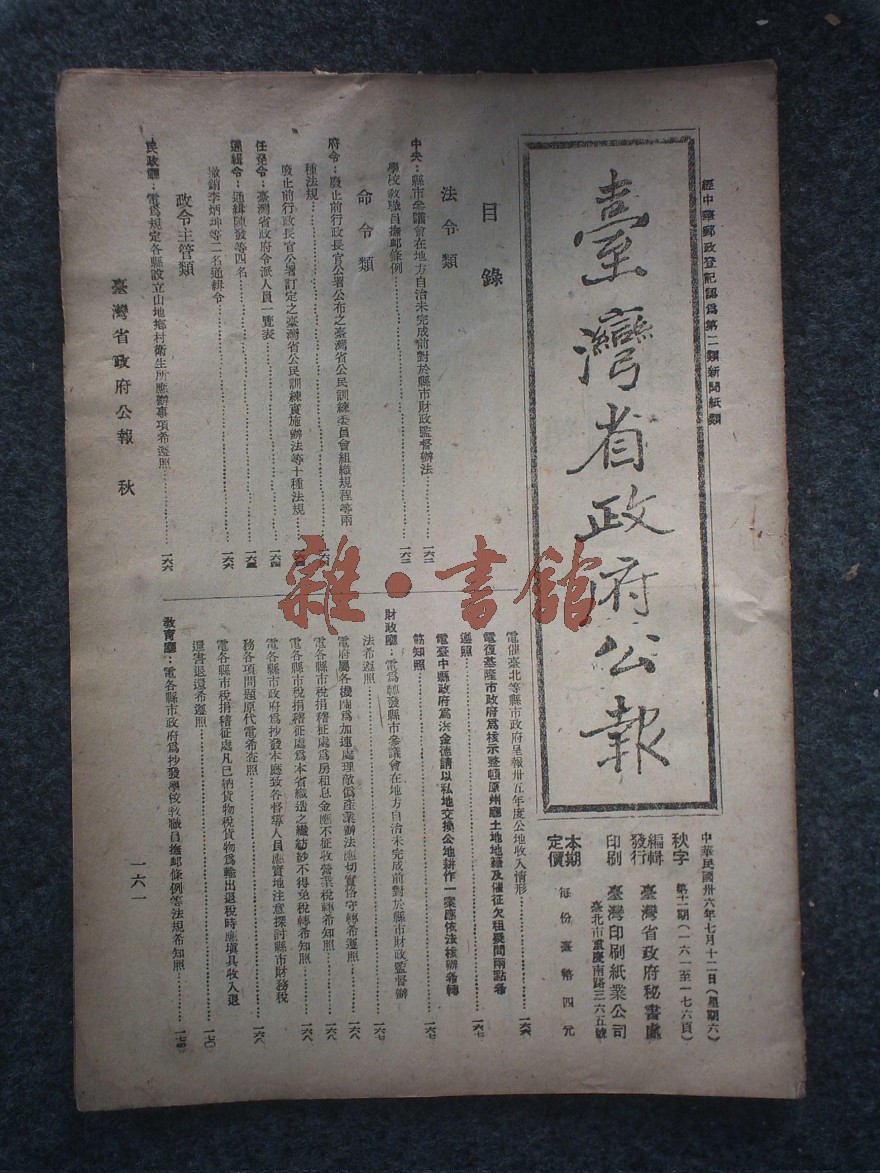 經中華郵政登記認爲第二類新聞紙類
臺灣省政府公報
中華民國卅六年七月十二日（星期六）
秋字 第十一期（一六一至一七六頁）
編輯發行 臺灣省政府秘書處
印刷 臺灣印刷紙業公司
臺北市重慶南路三六五號
本期定價 每份臺幣四元
目錄
法令類
中央：縣市參議會在地方自治未完成前對於縣市財政監督辦法………一六二
學校教職員撫卹條例………一六二
命令類
府令：廢止前行政長官公署公布之臺灣省公民訓練委員會組織規程等兩
種法規………一六
廢止前行政長官公署訂定之臺灣省公民訓練實施辦法等十種法規………
任免令：臺灣省政府令派人員一覽表………一六四
通緝令：通緝陳發等四名………一六五
撤銷李炳坤等二名通緝令………一六六
政令主管類
民政廳：電爲規定各縣設立山地鄉村衛生所應辦事項希遵照………一六六
電催臺北等縣市政府呈報卅五年度公地收入情形………一六六
電復基隆市政府爲核示整頓原州廳土地地籍及催征欠租疑問兩點希
遵照………一六七
電臺中縣政府爲洪金德請以私地交換公地耕作一案應依法核辦希轉
飭知照………一六七
財政廳：電爲轉發縣市參議會在地方自治未完成前對於縣市財政監督辦
法希遵照………一六七
電府屬各機關爲加速處理敵僞產業辦法應切實恪守轉希遵照………一六八
電各縣市稅捐稽征處爲房租息金應不征收營業稅轉希知照………一六八
電各縣市稅捐稽征處爲本省織造之織紡紗不得免稅轉希知照………一六八
電各縣市政府爲抄發本廳致各督導人員應實地注意探討縣市財務稅
務各項問題原代電希查照………一六八
電各縣市稅捐稽征處凡已納貨物稅貨物爲輸出退稅時應填具收入退
還書退還希遵照………一七〇
教育廳：電各縣市政府爲抄發學校教職員撫卹條例等法規希知照………一七四
臺灣省政府公報 秋
一六一
雜·書館